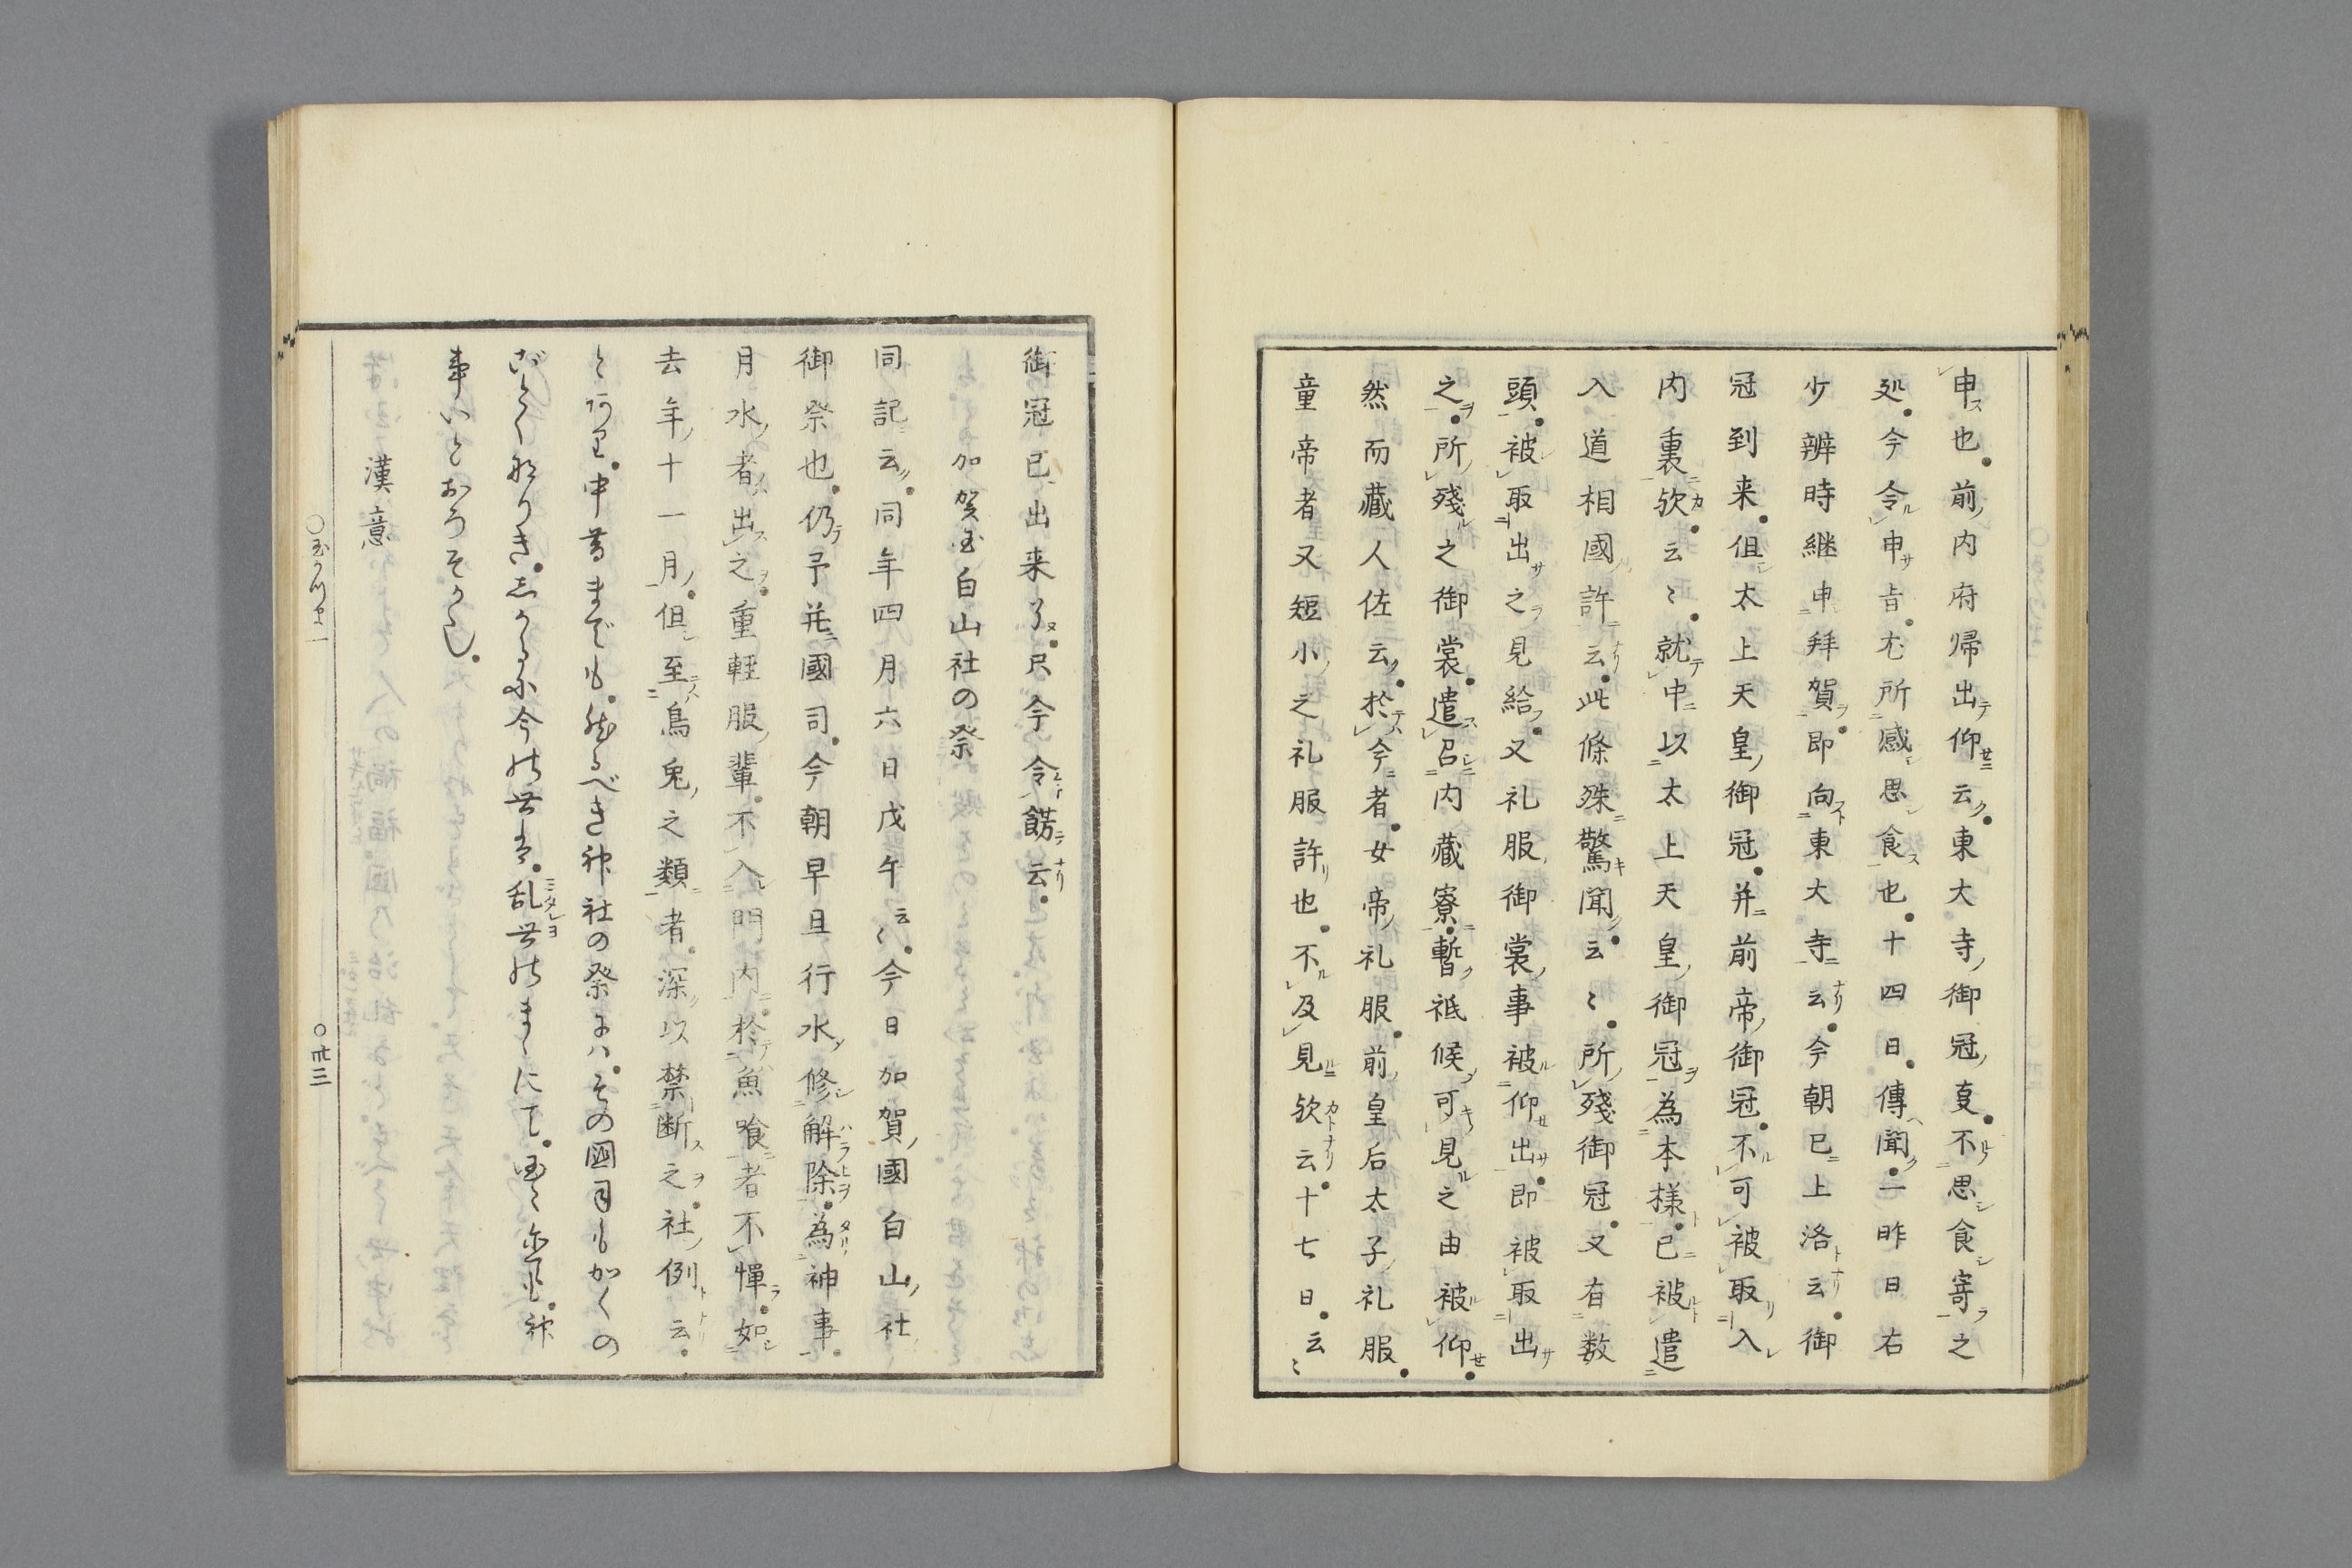 申也。前内府帰出仰云。東大寺御冠㕝。不思食寄之
処。今令申旨。尤所感思食也。十四日。傳聞。一昨日右
少辨時継申拜賀。即向東大寺云。今朝巳上洛云。御
冠到来。但太上天皇御冠。并前帝御冠。不可被取入
内裏欤。云〻。就中以太上天皇御冠為本様。已被遣
入道相國許云。此條殊驚聞。云〻。所殘御冠。又有数
頭。被取出之見給。又礼服御裳事被仰出。即被取出
之。所殘之御裳。遣召内藏寮。暫祗候可見之由被仰。
然而藏人佐云。於今者。女帝礼服。前皇后太子礼服。
童帝者又短小之礼服許也。不及見欤云。十七日。云〻
御冠已出来了。只今令餝云。
加賀国白山社の祭
同記云。同年四月六日戊午云〻。今日加賀國白山社
御祭也。仍予并國司。今朝早旦行水修解除。為神事。
月水者出之。重軽服輩。不入門内。於魚喰者不憚。如
去年十一月。但至鳥兔之類者。深以禁断之。社例云。
とあり。中昔までも。然るべき神社の祭には。その國司もかくの
ごとくなりき。しかるに今の世は。乱世のまゝにて。国〻にても。神
事いとおろそかなし。
漢意
○玉かつま一
○卅三